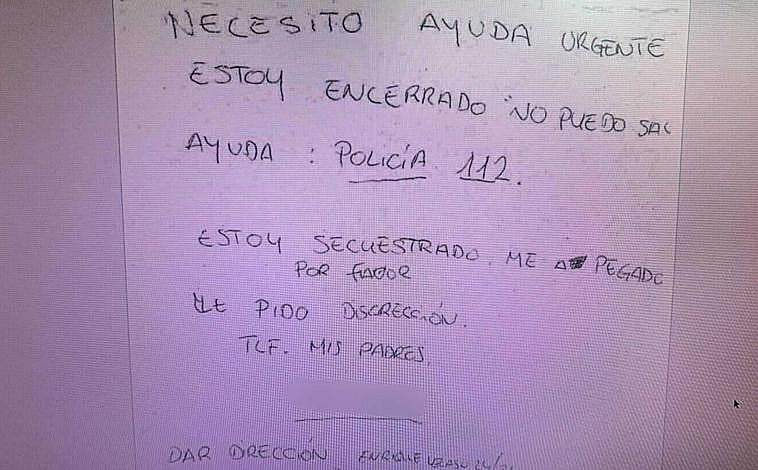 NECESITO AYUDA URGENTE
ESTOY ENCERRADO NO PUEDO SAL
AYUDA : POLICÍA 112.
ESTOY SECUESTRADO. ME A PEGADO
POR FAVOR
LE PIDO DISCRECCIÓN.
TLF. MIS PADRES.
DAR DIRECCIÓN ENRIQUE